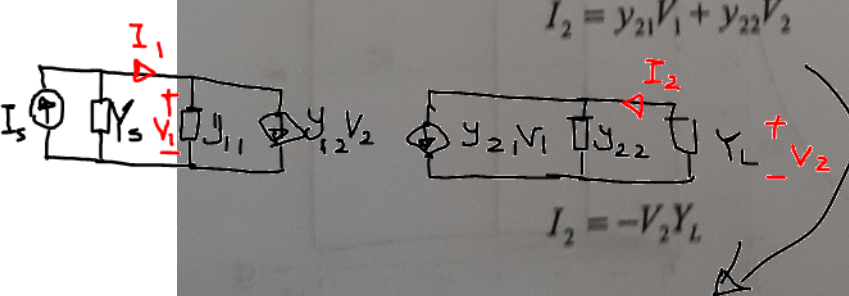 I₂ = y₂₁V₁ + y₂₂V₂
I₁
I₂
Iₛ Yₛ + V₁ − y₁₁ y₁₂V₂ y₂₁V₁ y₂₂ Y_L + V₂ −
I₂ = −V₂Y_L